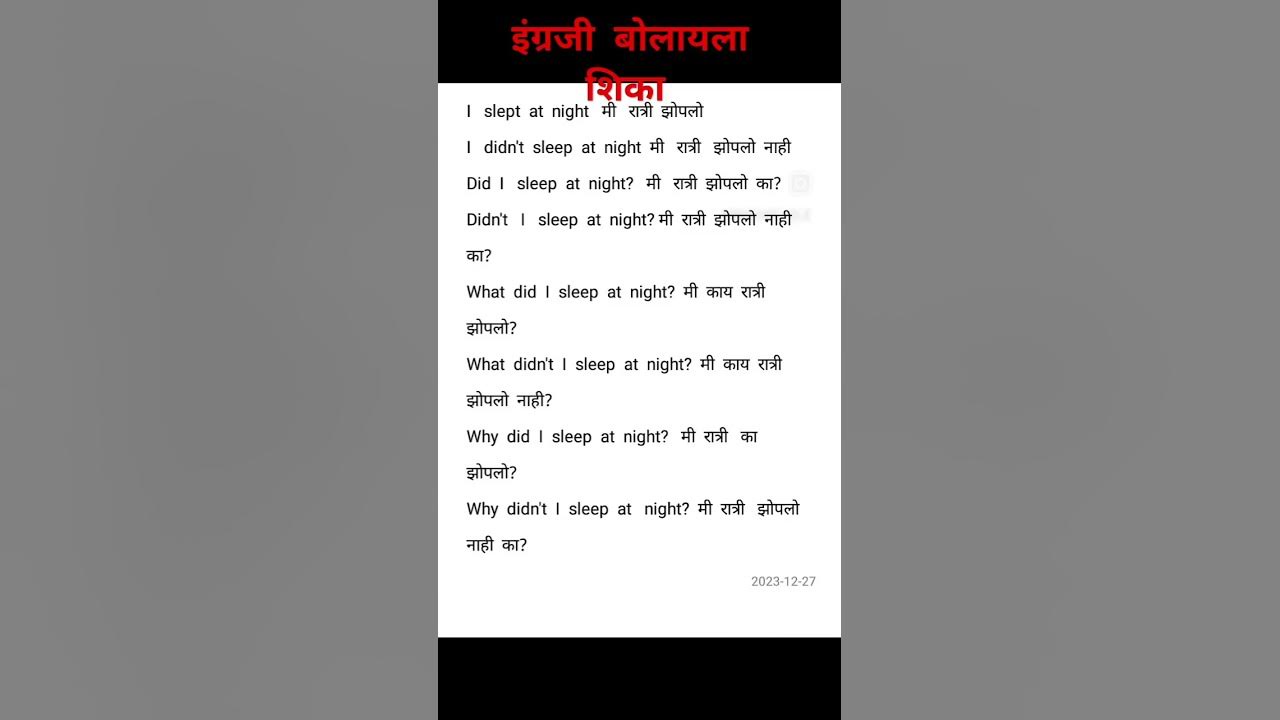 इंग्रजी बोलायला
शिका
I slept at night मी रात्री झोपलो
I didn't sleep at night मी रात्री झोपलो नाही
Did I sleep at night? मी रात्री झोपलो का?
Didn't I sleep at night? मी रात्री झोपलो नाही
का?
What did I sleep at night? मी काय रात्री
झोपलो?
What didn't I sleep at night? मी काय रात्री
झोपलो नाही?
Why did I sleep at night? मी रात्री का
झोपलो?
Why didn't I sleep at night? मी रात्री झोपलो
नाही का?
2023-12-27